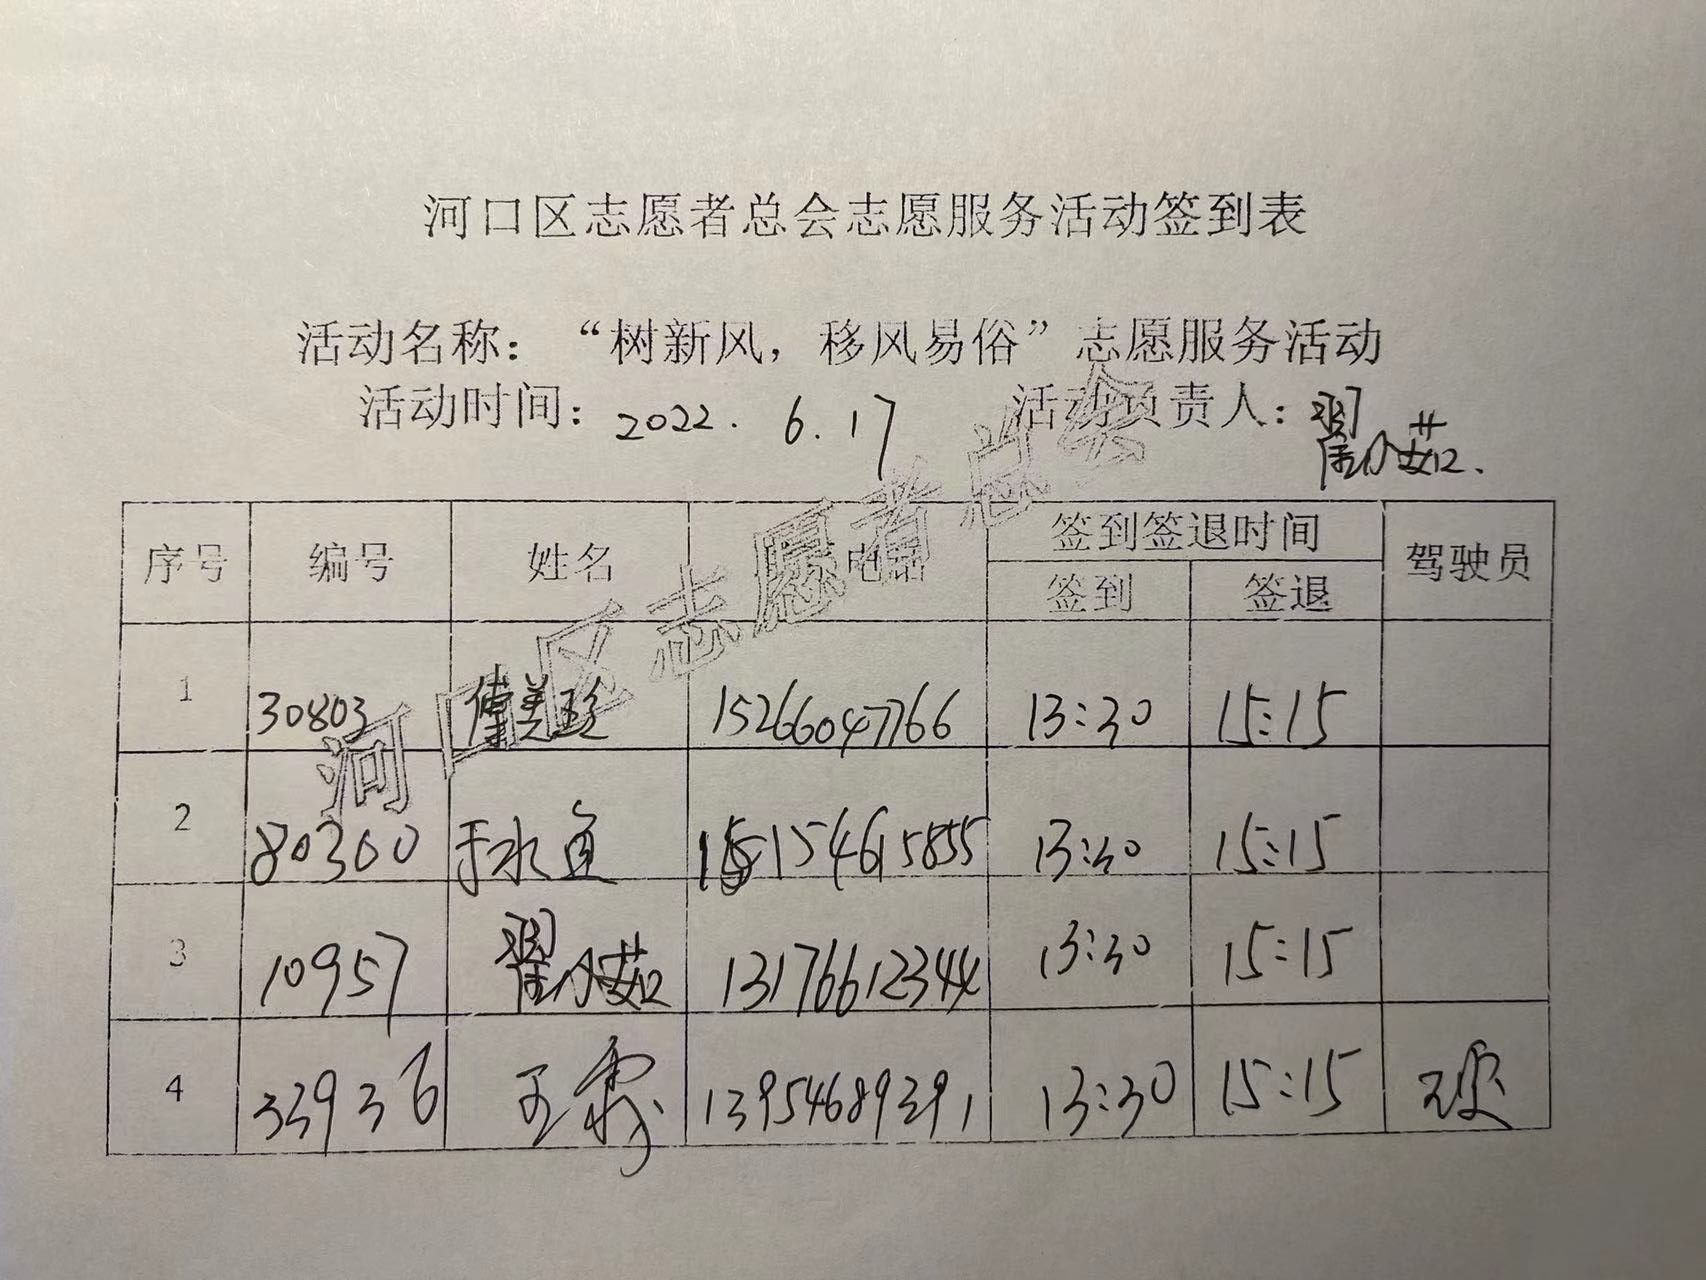 河口区志愿者总会志愿服务活动签到表
活动名称：“树新风，移风易俗”志愿服务活动
活动时间：2022.6.17 活动负责人：翟小茹.
序号 编号 姓名 电话 签到签退时间 驾驶员
签到 签退
1 30803 傅美珍 15266047766 13:30 15:15
2 80300 于水 15154615855 13:30 15:15
3 10957 翟小茹 13176612344 13:30 15:15
4 33936 王霞 13954689391 13:30 15:15
河口区志愿者总会